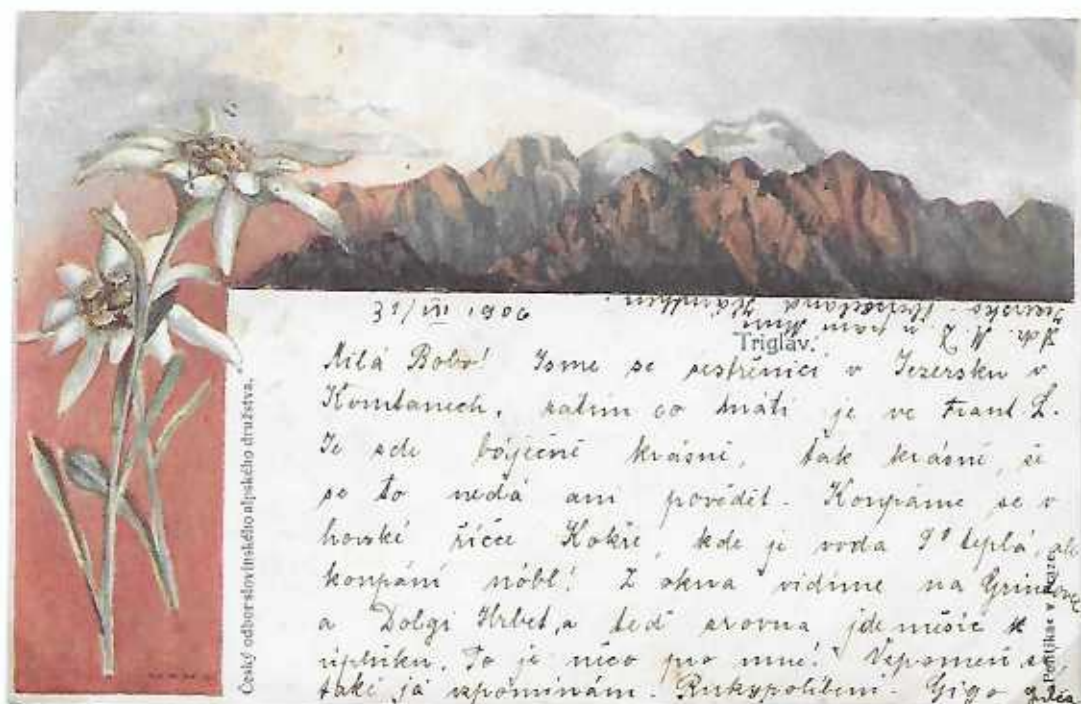 Triglav.
Milá Bobo! Jsme se sestřenicí v Jezersku v
Korutanech, zatím co máti je ve Frant. L.
Je zde báječně krásně, tak krásně, že
se to nedá ani povědět. Koupáme se v
horské říčce Kokře, kde je voda 9° teplá, ale
koupání nóbl! Z okna vidíme na Grintovec
a Dolgi Hrbet, a teď zrovna jde měsíc k
úplňku. To je něco pro mne! Vzpomeň si,
také já vzpomínám. Rukypolíbení. Gigo
Český odbor slovinského alpského družstva.
v Praze.